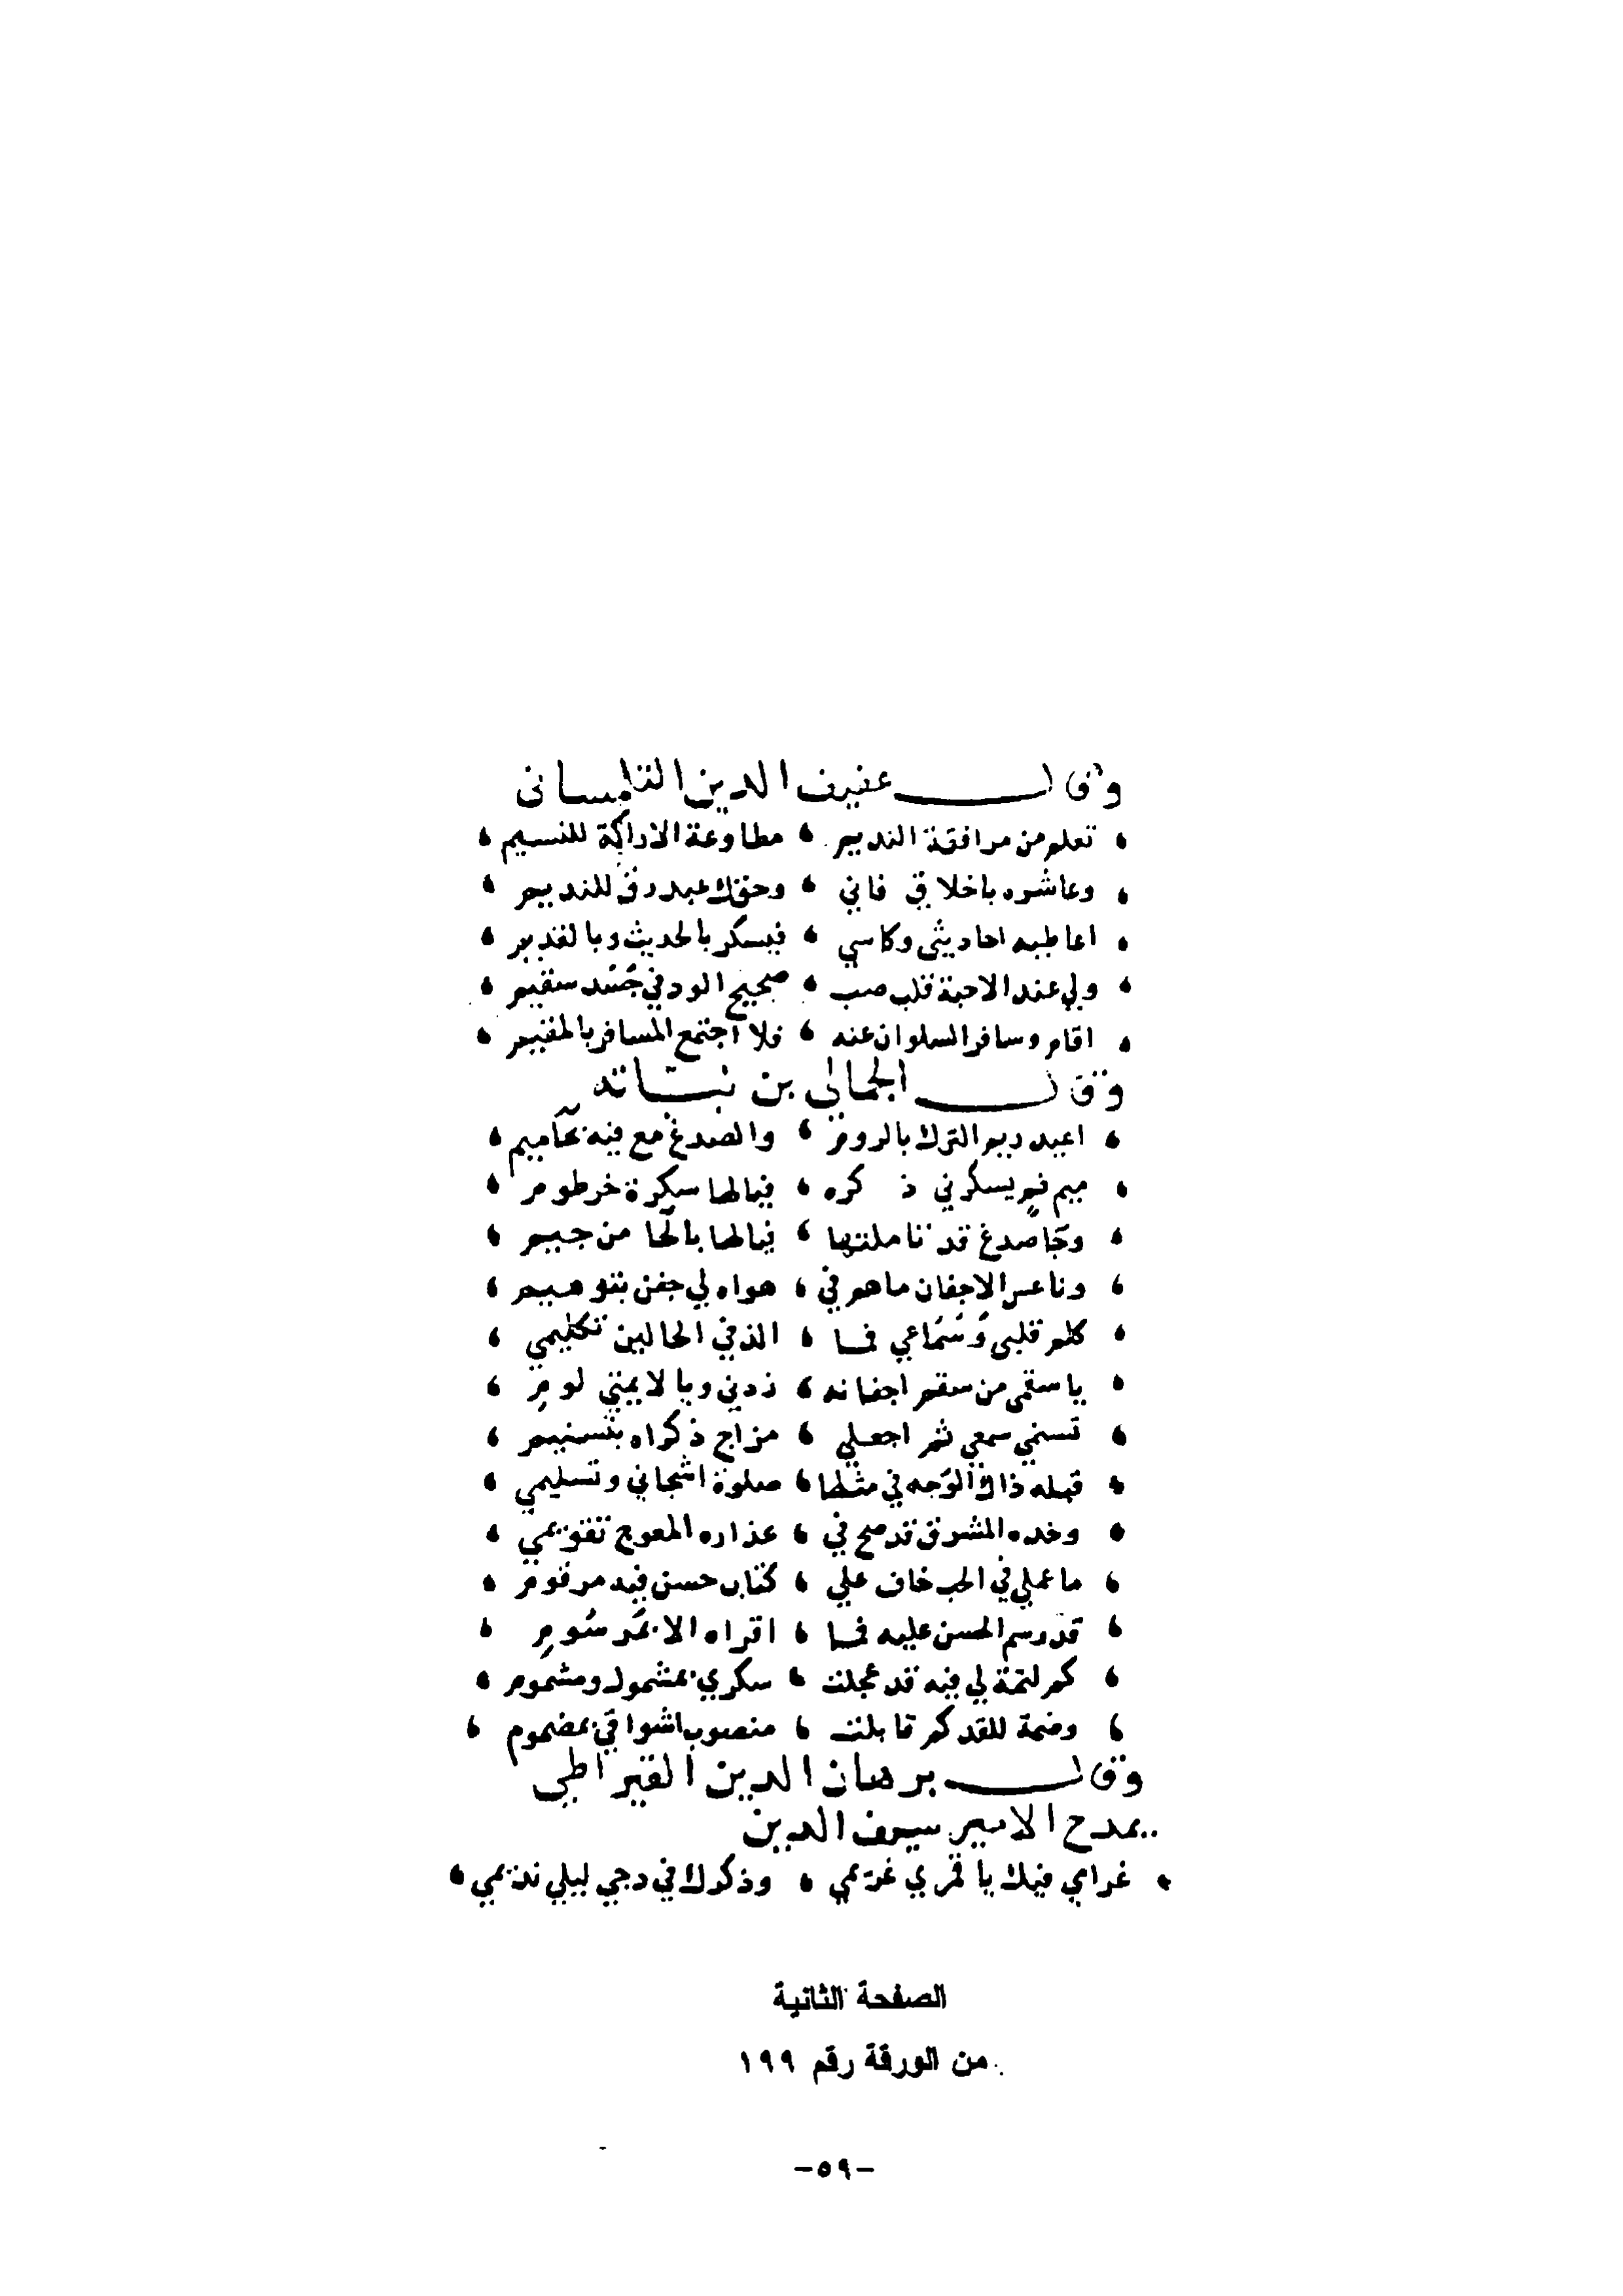 وقال عفيف الدين التلمسانى
تعلم من مرافقة النديم ، مطاوعة الاراكة للنسيم
وعاشره باخلاقي فاني ، وحقك عبد رق للنديم
اعاطيه احاديثي وكاسي ، فيسكر بالحديث وبالقديم
ولي عند الاحبة قلب صب ، صحيح الود في جسد سقيم
اقام وسافر السلوان عنه ، فلا اجتمع المسافر بالمقيم
وقال الجمالى بن نباتة
اعيد ريم الترك بالروم ، والصدغ مع فيه بحاميم
ميم فم يسكرني ذكره ، فيالها سكرة خرطوم
وحا صدغ قد تاملتها ، فيالها بالحا من جيم
وناعس الاجفان ما هم في ، هواه لي جفن بتوهيم
كلم قلبي وسماعي فما ، الذ في الحالين تكليمي
يا سقمي من سقم اجفانه ، زدني ويا لايمتي لوم
تسنمي سمعي ثم اجعلي ، مزاج ذكراه بتسنيم
قبله ذاك الوجه في مثلها ، صلوة اشجاني وتسليمي
وخده المشرق قد صح في ، عذاره المعوج تقويمي
ما عملي في الحب خاف علي ، كتاب حسن فيه مرقوم
قد رسم الحسن عليه فما ، اقراه الا بمرسوم
كم لثمة لي فيه قد عجلت ، سكري بمشمول ومشموم
وضمة للقد كم قابلت ، منصوب اشواقي بمضموم
وقال برهان الدين القيراطي
يمدح الامير سيف الدين
غرامي فيك يا قمري غريمي ، وذكرك في دجي ليلي نديمي
الصفحة الثانية
من الورقة رقم ١٩٩
-٥٩-